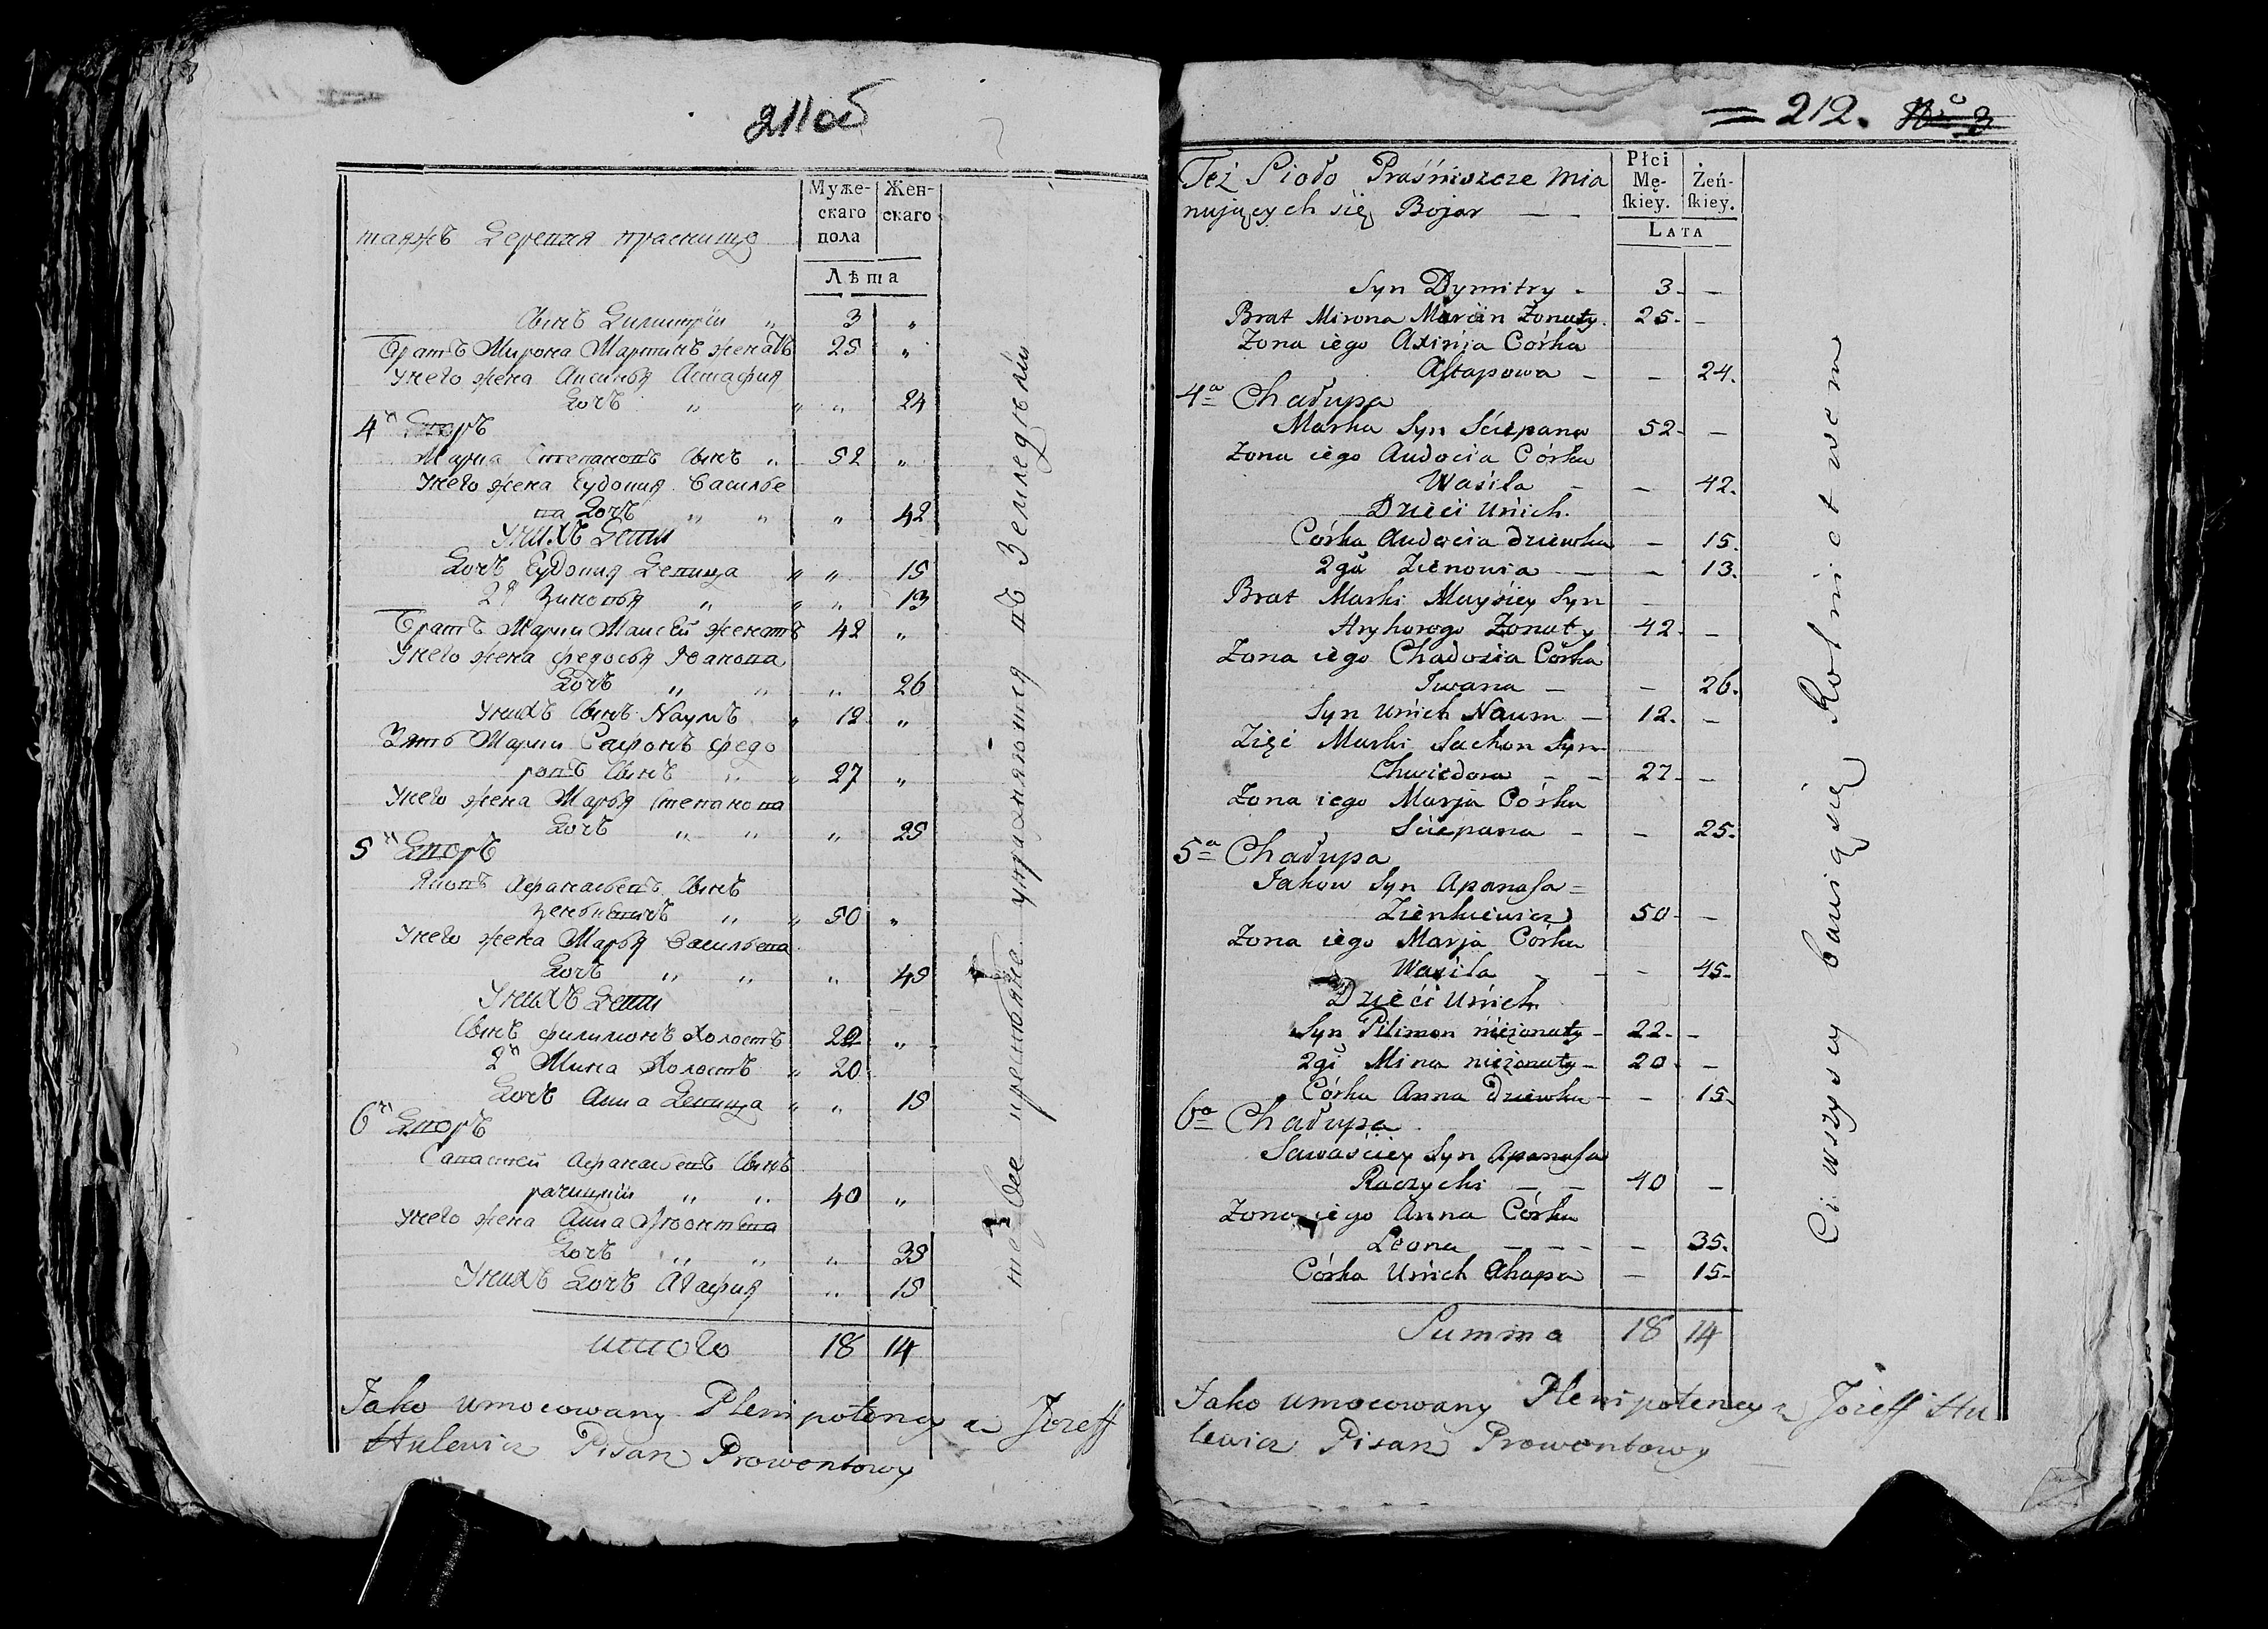 211об
Муже-
скаго
пола
Жен-
скаго
таяжъ Деревня праснище
Лѣта
Сынъ Димитрїй " 3 "
Братъ Мирона Мартинъ женатъ 25 "
Унего жена Аксинья Астафия
Дочь " " " 24
4й Дворъ
Марка Степановъ Сынъ " 52 "
Унего жена Еудокия Василье
ва Дочь " " " 42
Унихъ Дети
Дочь Еудокия Девица " " 15
2я Зиновья " " " 13
Братъ Марки Маисей женатъ 42 "
Унего жена федосья Иванова
Дочь " " " 26
Унихъ Сынъ Наумъ " 12 "
Зять Марки Сафонъ Федо
ровъ Сынъ " " 27 "
Унего жена Марья Степанова
Дочь " " " 25
5й Дворъ
Яковъ Афанасьевъ Сынъ
зенькевичъ " " 50 "
Унего жена Марья Васильева
Дочь " " " 45
Унихъ Дети
Сынъ филимонъ Холостъ 22 "
2й Мина Холостъ " 20
Дочь Анна Девица " " 15
6й Дворъ
Савастей Афанасьевъ Сынъ
рачицкїй " " 40 "
Унего жена Анна Леонтьева
Дочь " " " 35
Унихъ Дочь Агафия " 15
итого 18 14
Jako umocowany Plenipotencya Jozeff
Hulewicz Pisarz Prowentowy
все крестьяна упражняются въ Земледѣлїи
= 212. № 3
Też Sioło Praśniszcze mia
nujących się Bojar — —
Płci
Mę-
ſkiey.
Żeń-
ſkiey.
LATA
Syn Dymitry - 3 - —
Brat Mirona Marcin Żonaty. 25 - —
Żona iego Axinia Córka
Aſtapowa — — 24.
4a Chałupa
Marka Syn Ściepana 52 - —
Żona iego Audocia Córka
Wasila — — 42.
Dzieci Unich.
Córka Audocia dziewka — 15.
2ga Zienowia — — 13.
Brat Marki Mayśiey Syn
Hryhorego Żonaty 42 - —
Żona iego Chadosia Córka
Iwana — — 26.
Syn Unich Naum — 12. —
Zięć Marki Sachon Syn
Chwiedora — — 27 - —
Żona iego Marja Córka
Ściepana — — 25.
5a Chałupa
Jakow Syn Apanaſa =
Zienkiewicz 50 - —
Żona iego Marja Córka
Wasila — — 45 -
Dzieci Unich
Syn Pilimon nieżonaty — 22 - —
2gi Mina nieżonaty — 20 - —
Córka Anna Dziewka — — 15.
6a Chałupa
Sawaściey Syn Apanaſa
Raczycki — — 40 —
Żona iego Anna Córka
Leona — — — — 35.
Córka Unich Ahapa — 15 -
Summa 18 14
Jako umocowany Plenipotencya Jozeff Hu
lewicz Pisarz Prowentowy
Ci wszyscy bawią się Rolnictwem